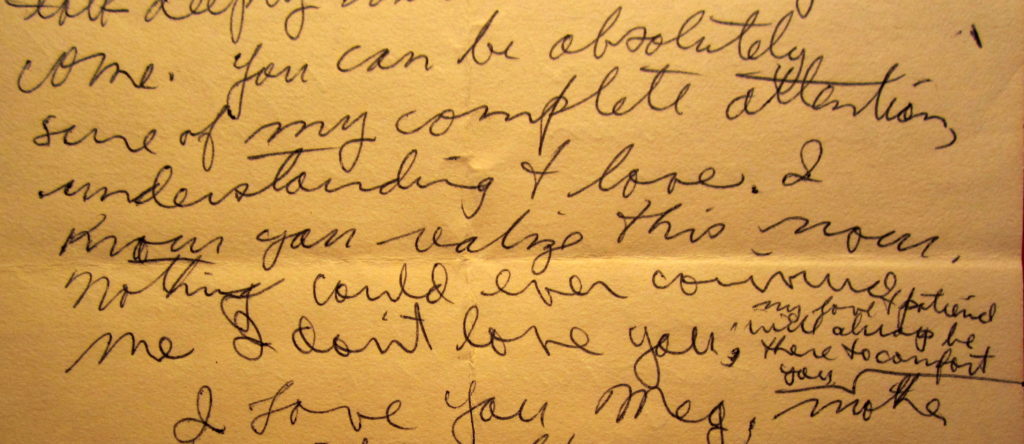 deeply
come. You can be absolutely
sure of my complete attention,
understanding & love. I
know you realize this now.
Nothing could ever convince
me I don't love you;
my love & patience
will always be
there to comfort
you
I love you Meg,